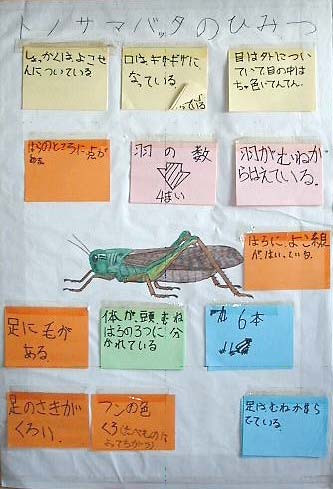 トノサマバッタのひみつ
しょっかくは、よこせ
んについている。
口は、ギザギザに、
なっている。
目は外につい
ていて、目の中は
ちゃ色いてんてん。
はらのところに点が
ある。
羽の数
4まい
羽がむねか
らはえている。
はらに、よこ線
がはいっている。
足に毛が
ある。
体が、頭、むね
はらの3つに分
かれている
6本
足のさきが
くろい。
フンの色
くろ(たべものに
よってちがう)
足はむねから
でている。